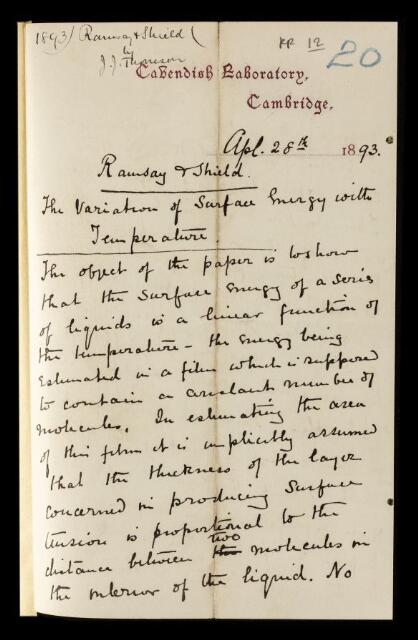 1893) Ramsay & Shield (
by
J. J. Thomson
RR 12
20
Cavendish Laboratory,
Cambridge.
Apl. 28th 1893.
Ramsay & Shield.
The Variation of Surface Energy with
Temperature.
The object of the paper is to show
that the surface energy of a series
of liquids is a linear function of
the temperature – the energy being
estimated in a film which is supposed
to contain a constant number of
molecules. In estimating the area
of this film it is implicitly assumed
that the thickness of the layer
concerned in producing Surface
tension is proportional to the
distance between two molecules in
the interior of the liquid. No